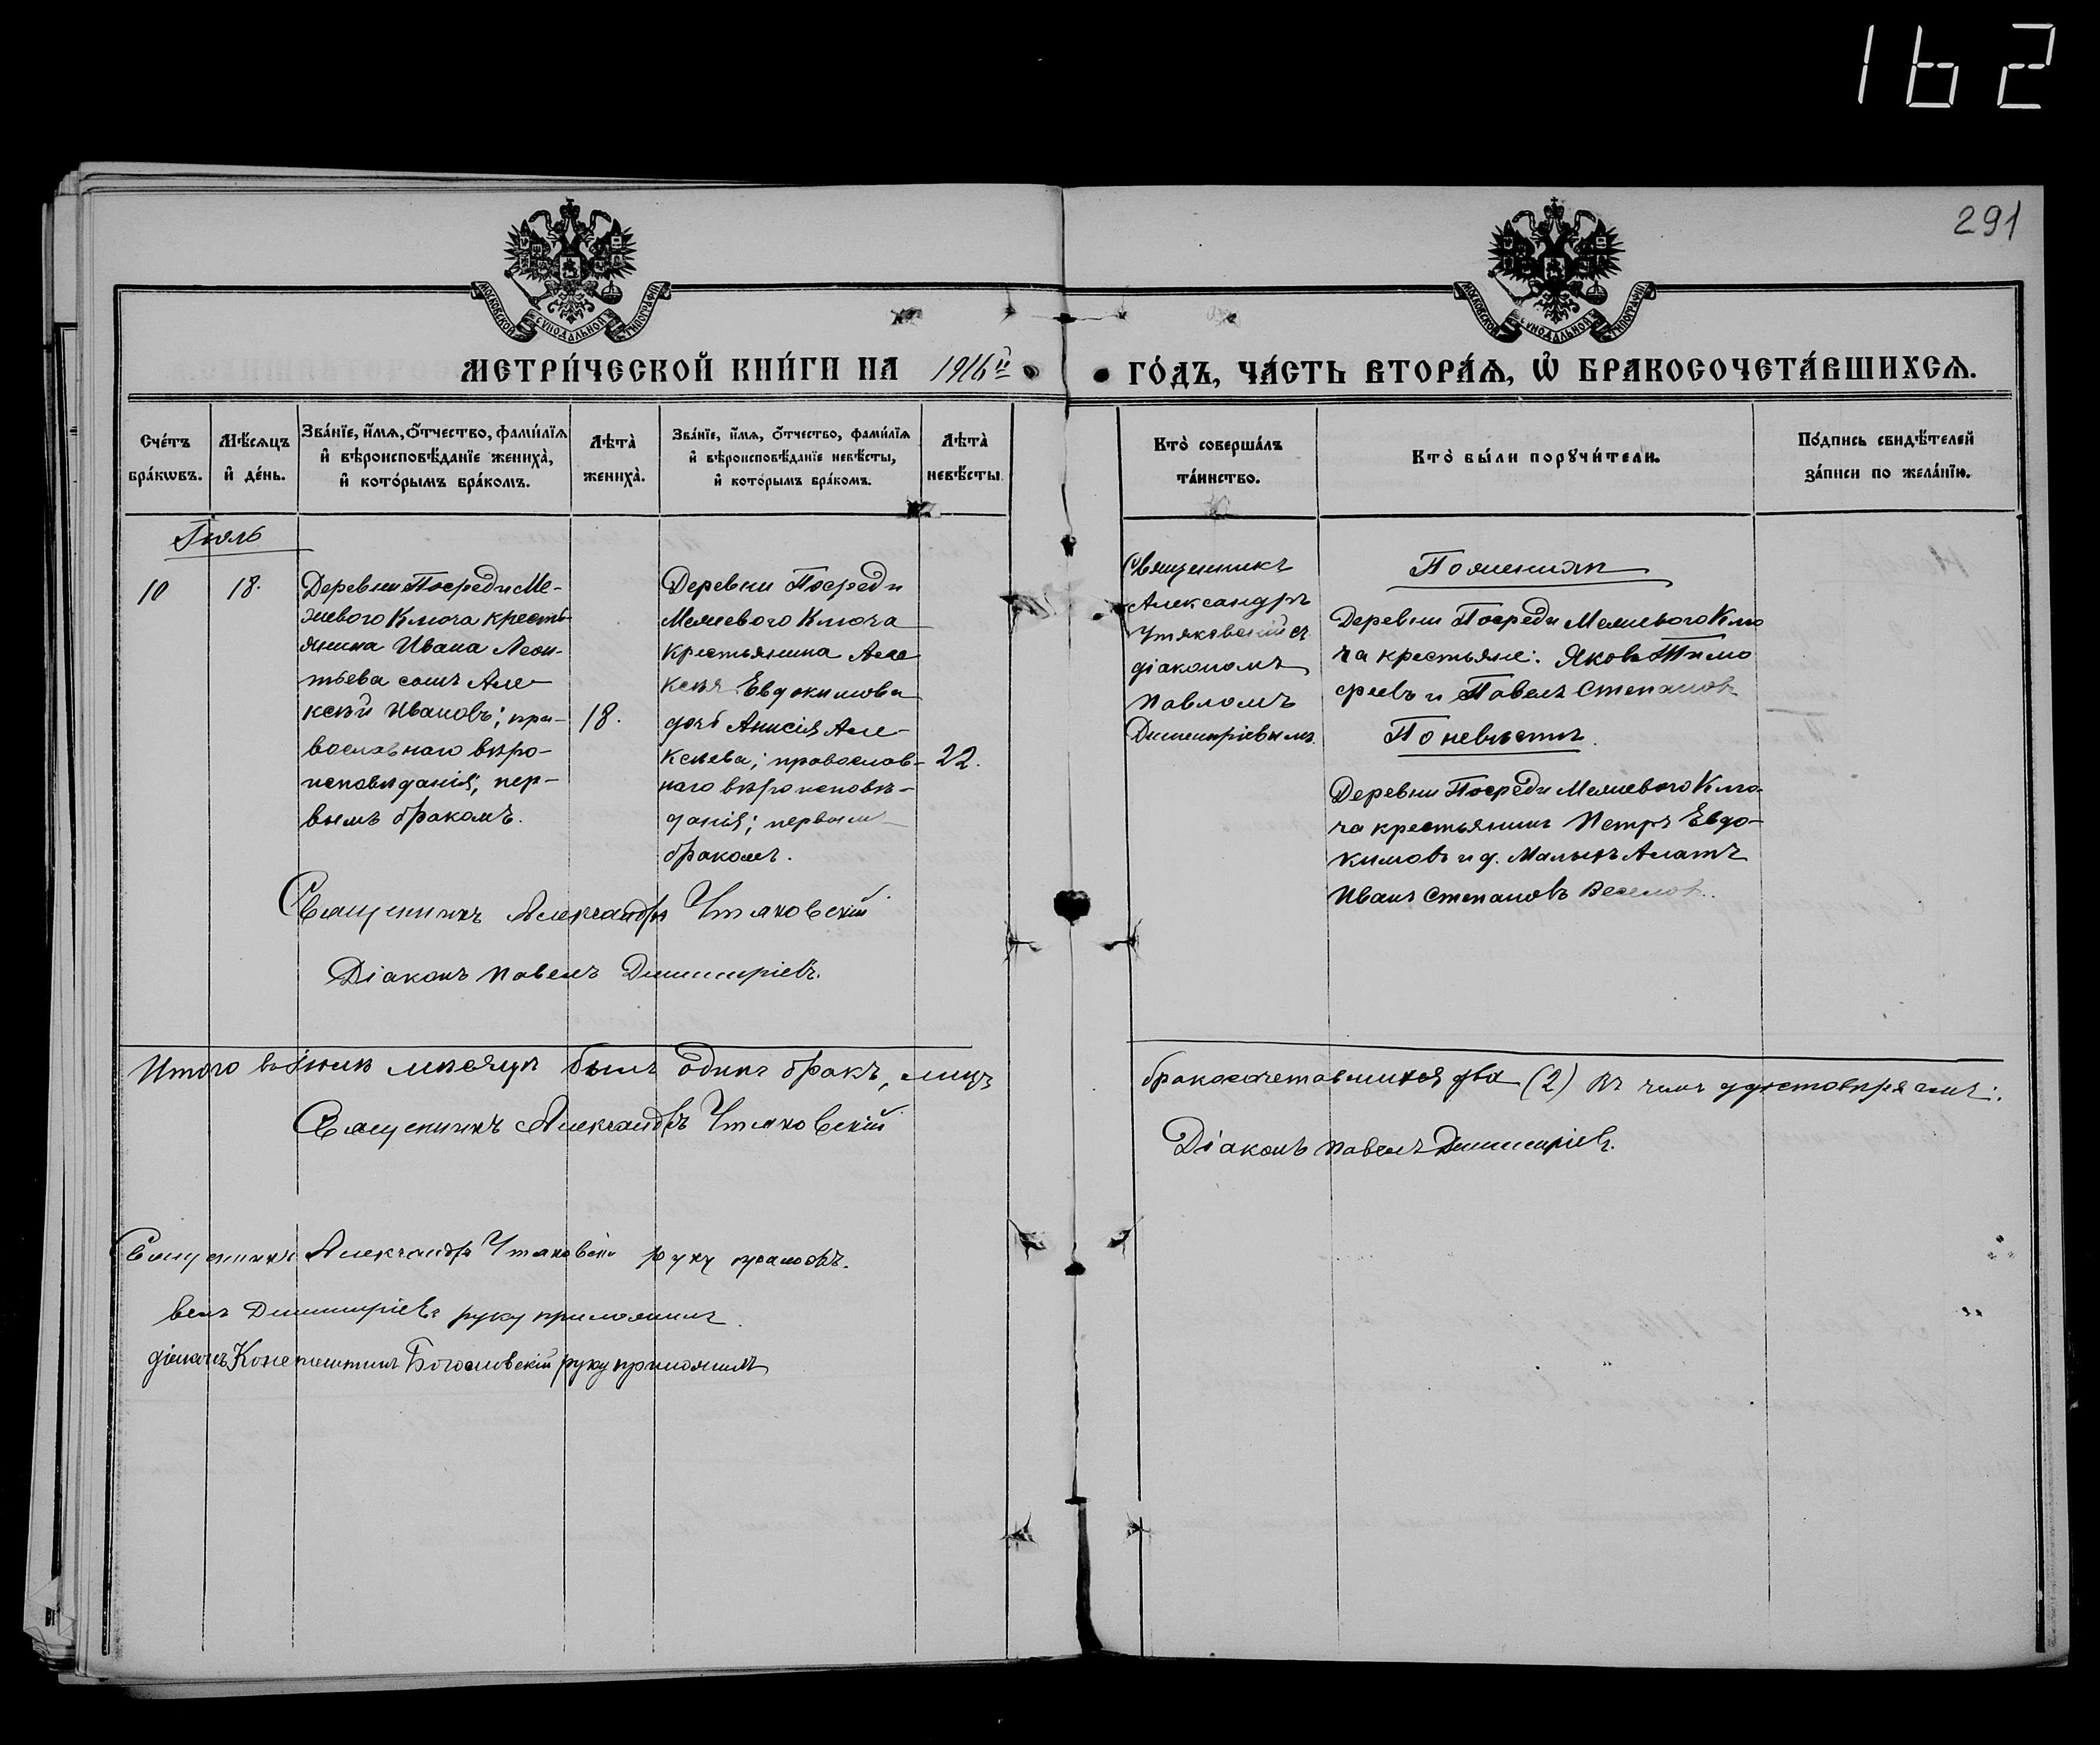 162
291
МОСКОВСКОЙ СѴНОДАЛЬНОЙ ТИПОГРАФІИ
МОСКОВСКОЙ СѴНОДАЛЬНОЙ ТИПОГРАФІИ
МЕТРИ́ЧЕСКОЙ КНИ́ГИ НА 1916й
ГО́ДЪ, ЧА́СТЬ ВТОРА́Ѧ, Ѽ БРАКОСОЧЕТА́ВШИХСѦ.
Сче́тъ бра́кѡвъ.
Мѣ́сѧцъ и҆ де́нь.
Зва́нїе, и҆́мѧ, ѻ҆́тчество, фами́лїѧ
и҆ вѣроисповѣ́данїе жениха̀,
и҆ кото́рымъ бра́комъ.
Лѣта̀ жениха̀.
Зва́нїе, и҆́мѧ, ѻ҆́тчество, фами́лїѧ
и҆ вѣроисповѣ́данїе невѣ́сты,
и҆ кото́рымъ бра́комъ.
Лѣта̀ невѣ́сты
Кто̀ соверша́лъ та́инство.
Кто̀ бы́ли порꙋчи́тели.
По́дпись свидѣ́телей
за́писи по жела́нїю.
Іюль
10
18.
Деревни Посреди Ме-
лиевого Ключа кресть-
янина Ивана Леон-
тьева сынъ Але-
ксѣй Ивановъ; пра-
вославнаго вѣро-
исповѣданія; пер-
вымъ бракомъ.
18.
Деревни Посреди
Мелиевого Ключа
крестьянина Але
ксѣя Евдокимова
дочь Анисія Але-
ксѣева; православ-
наго вѣроисповѣ-
данія; первымъ
бракомъ.
22.
Священникъ
Александръ
Утяковскій съ
діакономъ
Павломъ
Димитріевымъ.
По женихѣ
Деревни Посреди Мелиевого Клю
ча крестьяне: Яковъ Тимо
феевъ и Павелъ Степановъ
По невѣстѣ.
Деревни Посреди Мелиевого Клю-
ча крестьянинъ Петръ Евдо-
кимовъ и д. Малыхъ Алатъ
Иванъ Степановъ Веселов..
Священникъ Александръ Утяковскій
Діаконъ Павелъ Димитріевъ.
Итого въ Іюлѣ мѣсяцѣ былъ одинъ бракъ, лицъ
бракосочетавшихся два (2) Въ чемъ удостовѣряемъ:
Священникъ Александръ Утяковскій
Діаконъ Павелъ Димитріевъ.
Священникъ Александръ Утяковскій руку
велъ Димитріевъ руку приложилъ.
діаконъ Константинъ Богословскій руку приложилъ